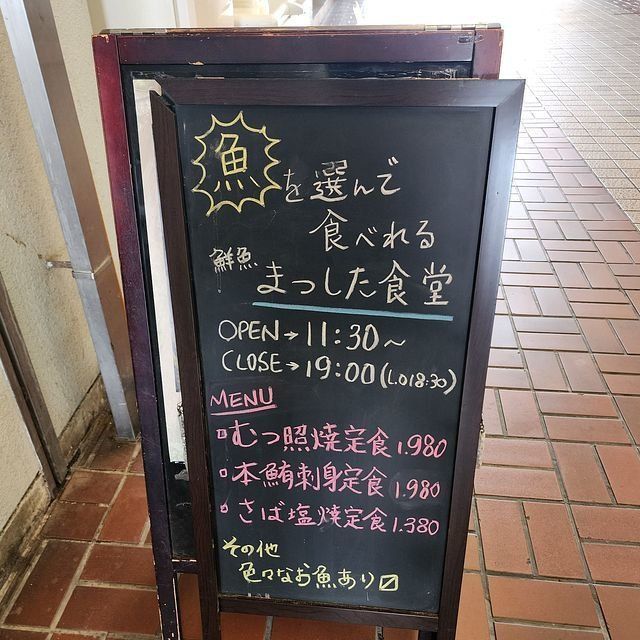 魚を選んで
食べれる
鮮魚 まつした食堂
OPEN→11:30～
CLOSE→19:00(L.O18:30)
MENU
むつ照焼定食 1.980
本鮪刺身定食 1.980
さば塩焼定食 1.380
その他
色々なお魚あり〼